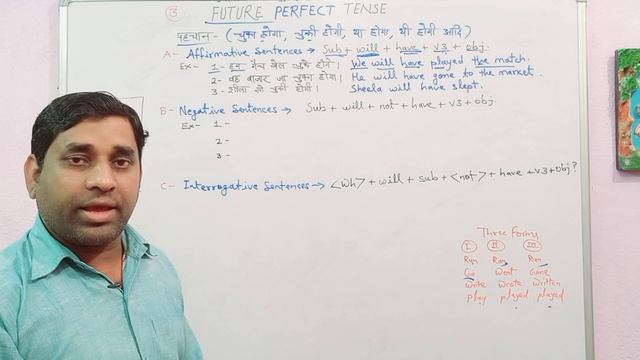 ③ FUTURE PERFECT TENSE
पहचान- (चुका होगा, चुकी होगी, या होगा, यी होगी आदि)
A- Affirmative Sentences → Sub + will + have + v3 + obj.
Ex- 1- हम मैच खेल चुके होंगे। We will have played the match.
2- वह बाजार जा चुका होगा। He will have gone to the market.
3- शीला सो चुकी होगी। Sheela will have slept.
B- Negative Sentences → Sub + will + not + have + v3 + obj.
Ex- 1-
2-
3-
C- Interrogative Sentences → <Wh> + will + sub + <not> + have + v3 + obj?
Three Forms
I II III
Run Ran Run
Go Went Gone
Write Wrote Written
Play played played